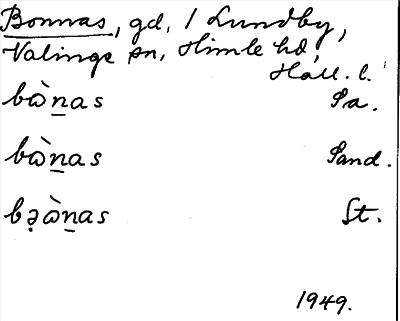 Bonnas, gd, 1 Lundby,
Valinge sn, Himle hd,
Hall. l.
bὼn̲as Sa.
bὼn̲as Sand.
bə̣ὼn̲as St.
1949.